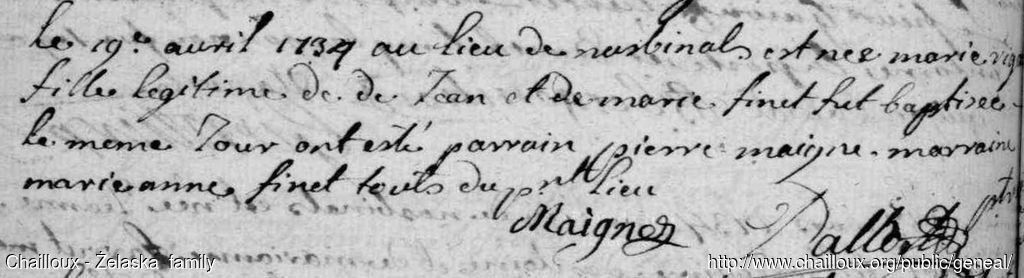 le 19e avril 1734 au lieu de nasbinals est nee marie
fille legitime de de Jean et de marie finet fut baptisée
le meme Jour ont esté parrain pierre maigne marraine
marie anne finet touts du pnt lieu
Maigne
Chailloux - Želaska family
http://www.chailloux.org/public/geneal/